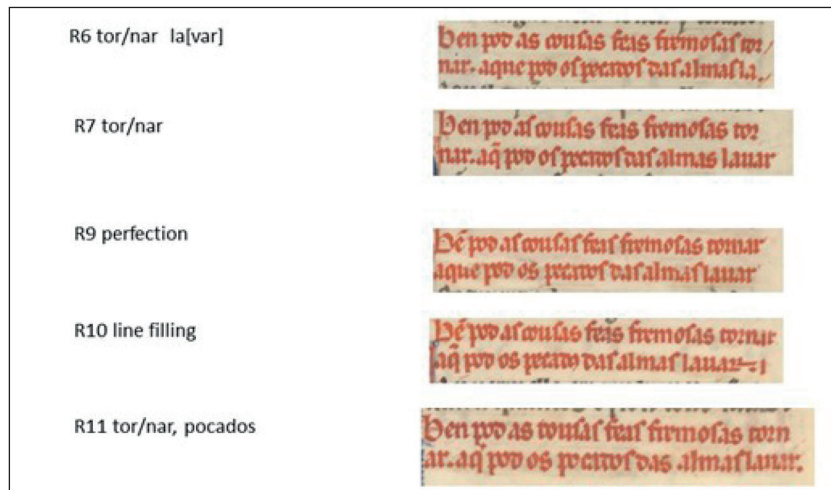 R6 tor/nar la[var]
Ben pod as cousas feas fremosas tor
nar. aque pod os pecados das almas la.
R7 tor/nar
Ben pod as cousas feas fremosas tor
nar. aq̃ pod os pecados das almas lauar
R9 perfection
Bẽ pod as cousas feas fremosas tornar
aque pod os pecados das almas lauar
R10 line filling
Bẽ pod as cousas feas fremosas tornar
aq̃ pod os pecados das almas lauar
R11 tor/nar, pocados
Ben pod as cousas feas fremosas torn
ar. aq̃ pod os pocados das almas lauar.